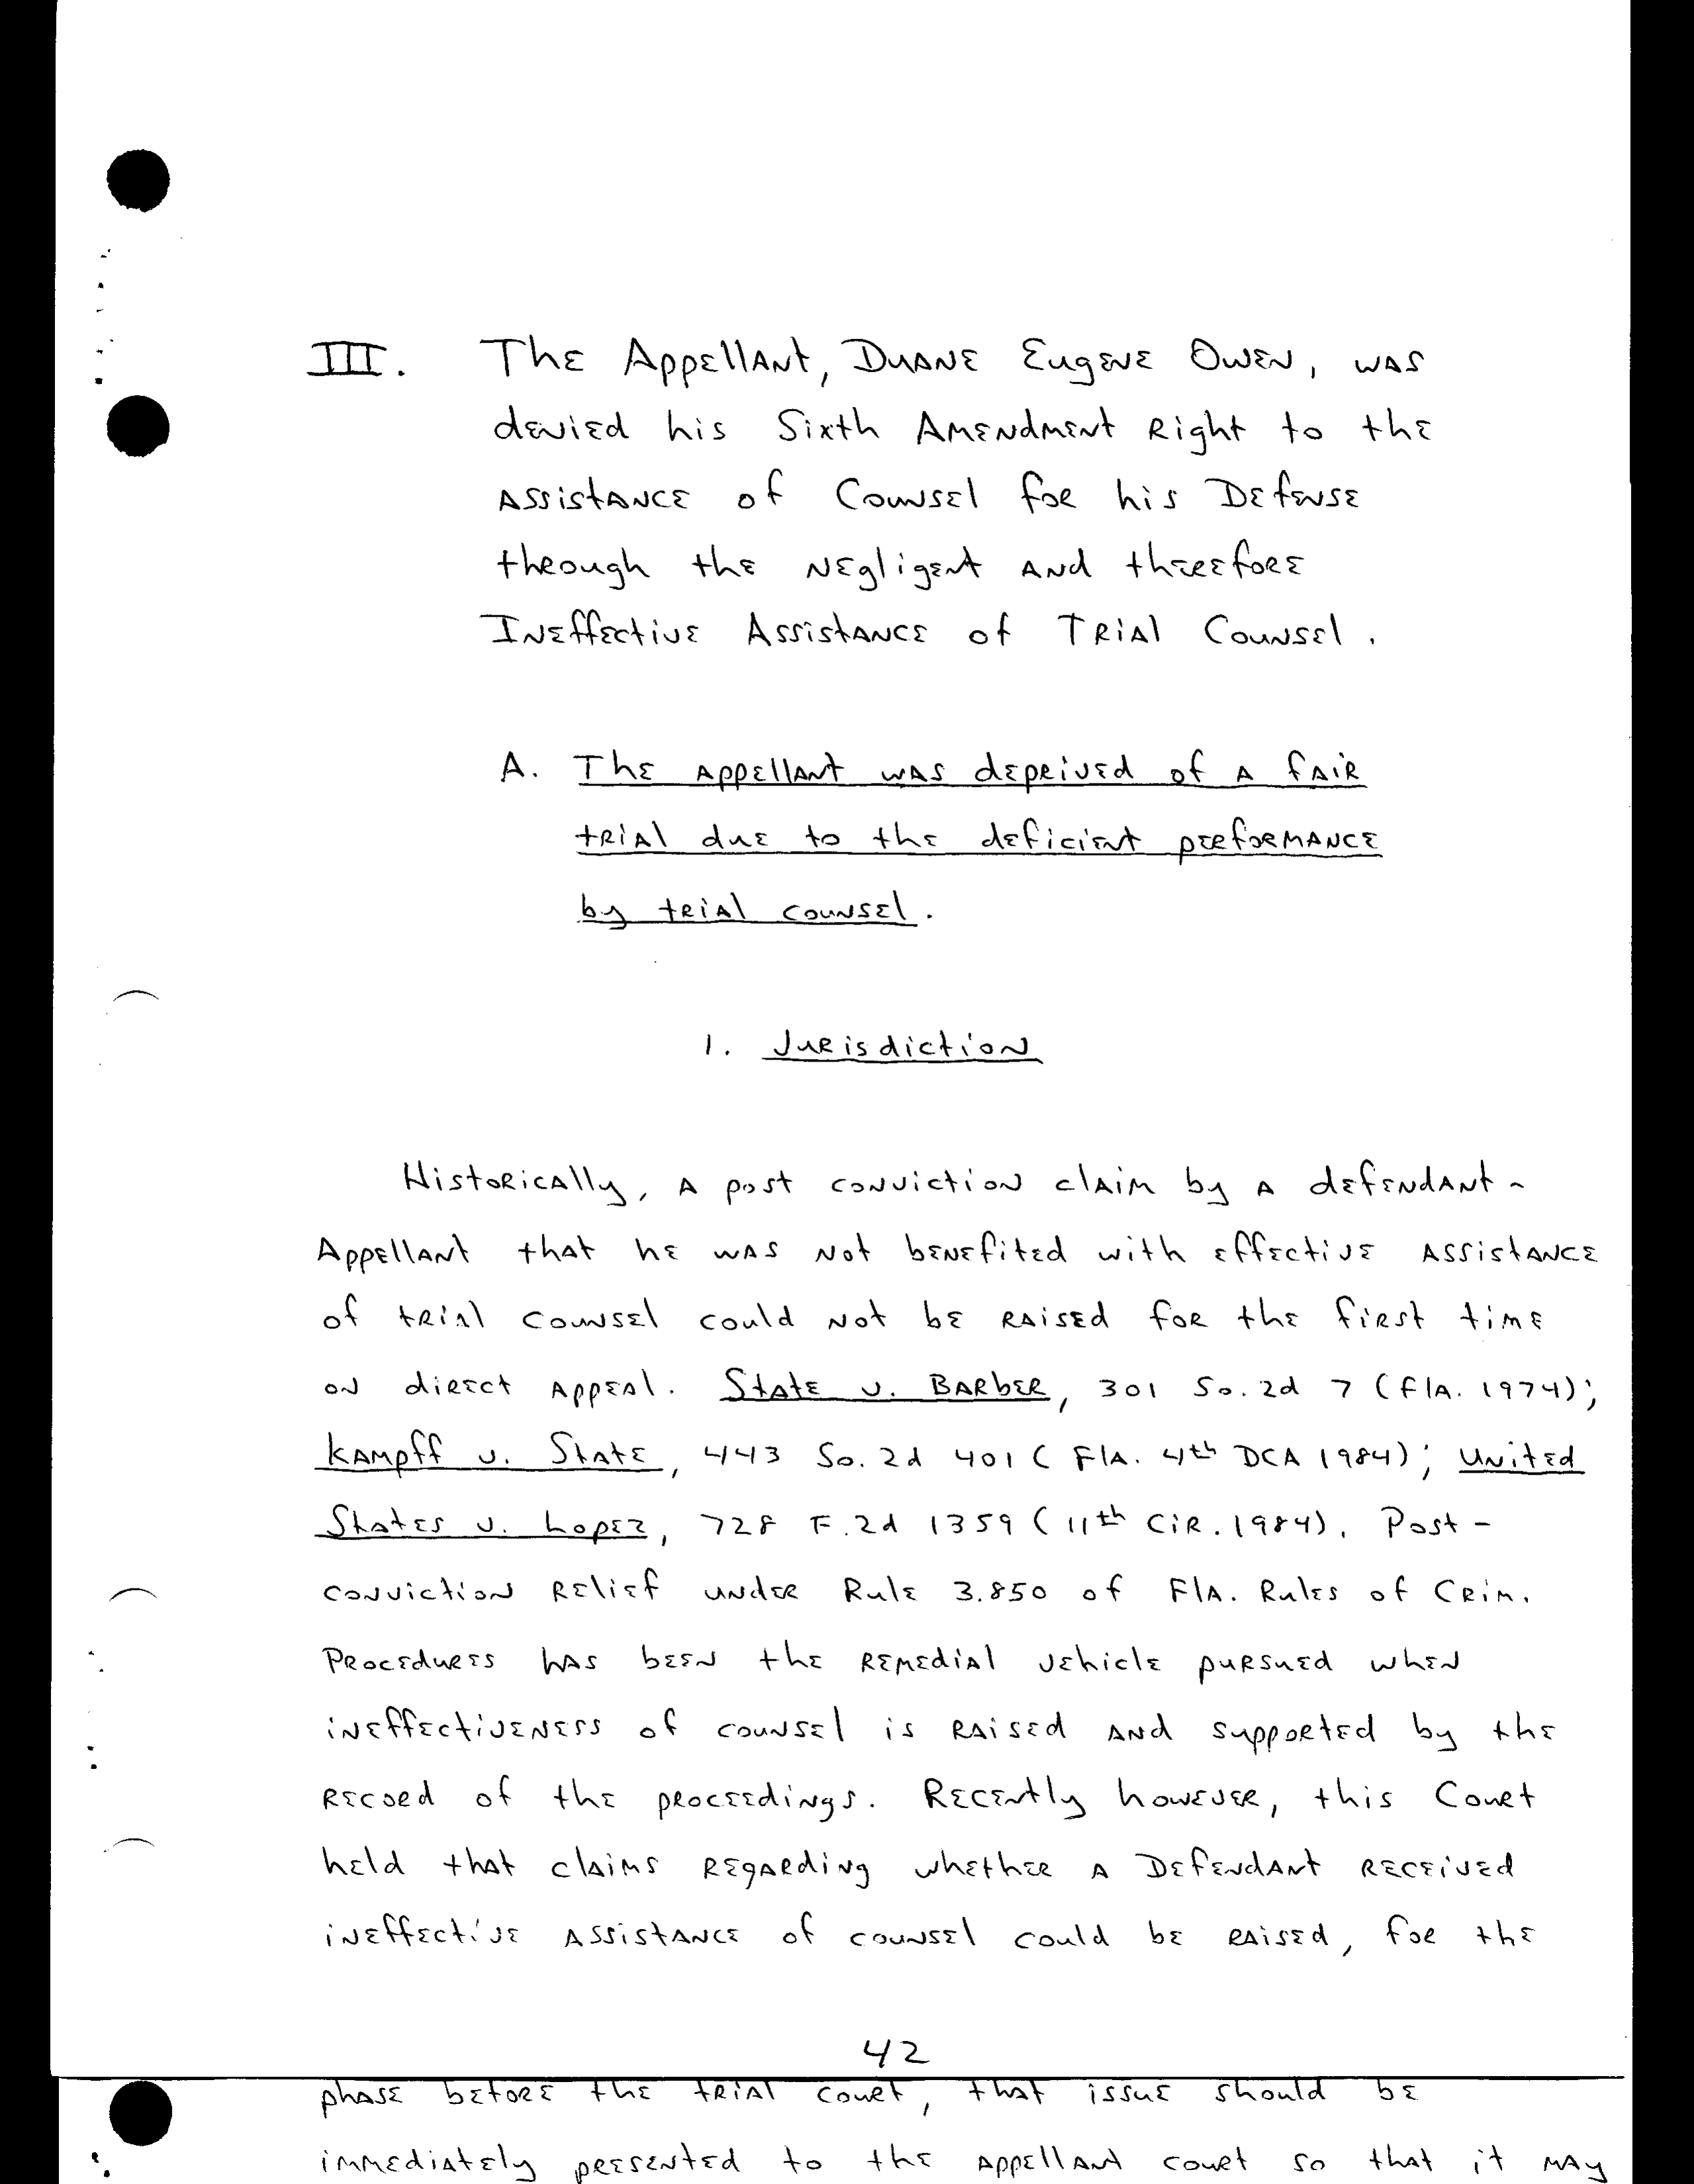 III. The Appellant, Duane Eugene Owen, was
denied his Sixth Amendment Right to the
Assistance of Counsel for his Defense
through the Negligent and therefore
Ineffective Assistance of Trial Counsel.
A. The Appellant was deprived of a fair
trial due to the deficient performance
by trial counsel.
1. Jurisdiction
Historically, a post conviction claim by a defendant-
Appellant that he was not benefited with effective assistance
of trial counsel could not be raised for the first time
on direct appeal. State v. Barber, 301 So. 2d 7 (Fla. 1974);
Kampff v. State, 443 So. 2d 401 (Fla. 4th DCA 1984); United
States v. Lopez, 728 F.2d 1359 (11th Cir. 1984). Post-
conviction relief under Rule 3.850 of Fla. Rules of Crim.
Procedures has been the remedial vehicle pursued when
ineffectiveness of counsel is raised and supported by the
record of the proceedings. Recently however, this Court
held that claims regarding whether a Defendant received
ineffective assistance of counsel could be raised, for the
42
phase before the trial court, that issue should be
immediately presented to the appellant court so that it may